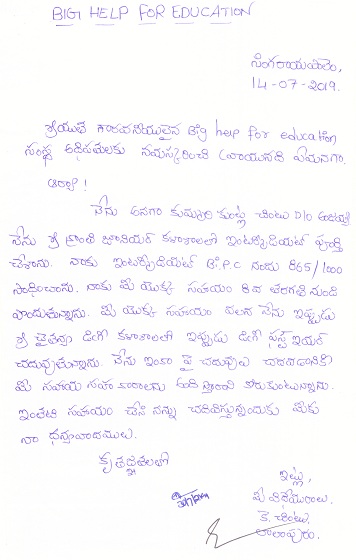 BIG HELP FOR EDUCATION
సింగరాయపాలెం,
14-07-2019.
శ్రీయుత గౌరవనీయులైన Big help for education
సంస్థ అధిపతులకు నమస్కరించి వ్రాయునది ఏమనగా.
ఆర్యా!
నేను అనగా కుమ్మరి కుంట్ల చింటు D/O
నేను శ్రీ క్రాంతి జూనియర్ కళాశాలలో ఇంటర్మీడియట్ పూర్తి
చేశాను. నాకు ఇంటర్మీడియట్ Bi.P.C నందు 865/1000
సాధించాను. నాకు మీ యొక్క సహయం 8వ తరగతి నుండి
పొందుతున్నాను. మీ యొక్క సహయం వలన నేను ఇప్పుడు
శ్రీ చైతన్య డిగ్రీ కళాశాలలో ఇప్పుడు డిగ్రీ ఫస్ట్ ఇయర్
చదువుతున్నాను. నేను ఇంకా పై చదువులు చదవడానికి
మీ సహయ సహకారాలను అందిస్తారని కోరుకుంటున్నాను.
ఇంతటి సహయం చేసి నన్ను చదివిస్తున్నందుకు మీకు
నా ధన్యవాదములు.
కృతజ్ఞతలతో
ఇట్లు,
మీ విధేయురాలు.
కె. చింటు.